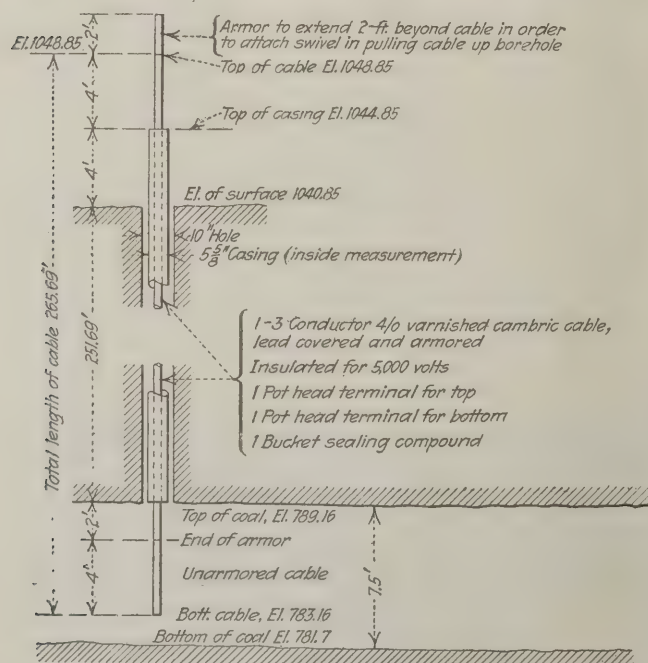 Armor to extend 2-ft. beyond cable in order
to attach swivel in pulling cable up borehole
El.1048.85
2'
Top of cable El.1048.85
4'
Top of casing El.1044.85
4'
El. of surface 1040.85
10" Hole
5 5/8" Casing (inside measurement)
Total length of cable 265.69'
251.69'
1-3 Conductor 4/0 varnished cambric cable,
lead covered and armored
Insulated for 5,000 volts
1 Pot head terminal for top
1 Pot head terminal for bottom
1 Bucket sealing compound
2'
Top of coal, El. 789.16
End of armor
4'
Unarmored cable
7.5'
Bott. cable, El. 783.16
Bottom of coal El. 781.7